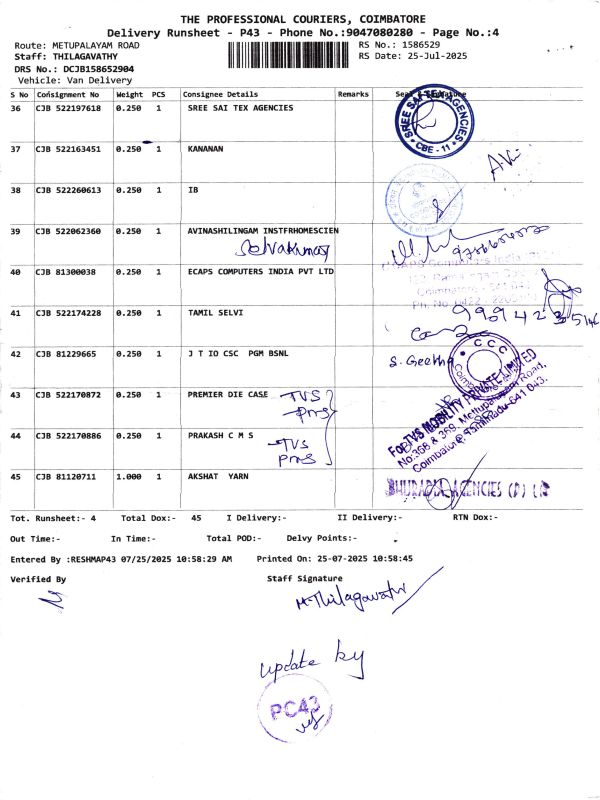 THE PROFESSIONAL COURIERS, COIMBATORE
Delivery Runsheet - P43 - Phone No.:9047080280 - Page No.:4
Route: METUPALAYAM ROAD
RS No.: 1586529
Staff: THILAGAVATHY
RS Date: 25-Jul-2025
DRS No.: DCJB158652904
Vehicle: Van Delivery
S No Consignment No Weight PCS Consignee Details Remarks
36 CJB 522197618 0.250 1 SREE SAI TEX AGENCIES
SREE SAI TEX AGENCIES
CBE - 11
37 CJB 522163451 0.250 1 KANANAN
38 CJB 522260613 0.250 1 IB
39 CJB 522062360 0.250 1 AVINASHILINGAM INSTFRHOMESCIEN
40 CJB 81300038 0.250 1 ECAPS COMPUTERS INDIA PVT LTD
41 CJB 522174228 0.250 1 TAMIL SELVI
42 CJB 81229665 0.250 1 J T IO CSC PGM BSNL
S. Geetha
CCC
43 CJB 522170872 0.250 1 PREMIER DIE CASE
TVS
For TVS MOBILITY PRIVATE LIMITED
No:368 & 369, Mettupalayam Road,
44 CJB 522170886 0.250 1 PRAKASH C M S
TVS
45 CJB 81120711 1.000 1 AKSHAT YARN
AGENCIES (P)
Tot. Runsheet:- 4 Total Dox:- 45 I Delivery:- II Delivery:- RTN Dox:-
Out Time:- In Time:- Total POD:- Delvy Points:-
Entered By :RESHMAP43 07/25/2025 10:58:29 AM Printed On: 25-07-2025 10:58:45
Verified By Staff Signature
M. Thilagavathi
update by
PC43